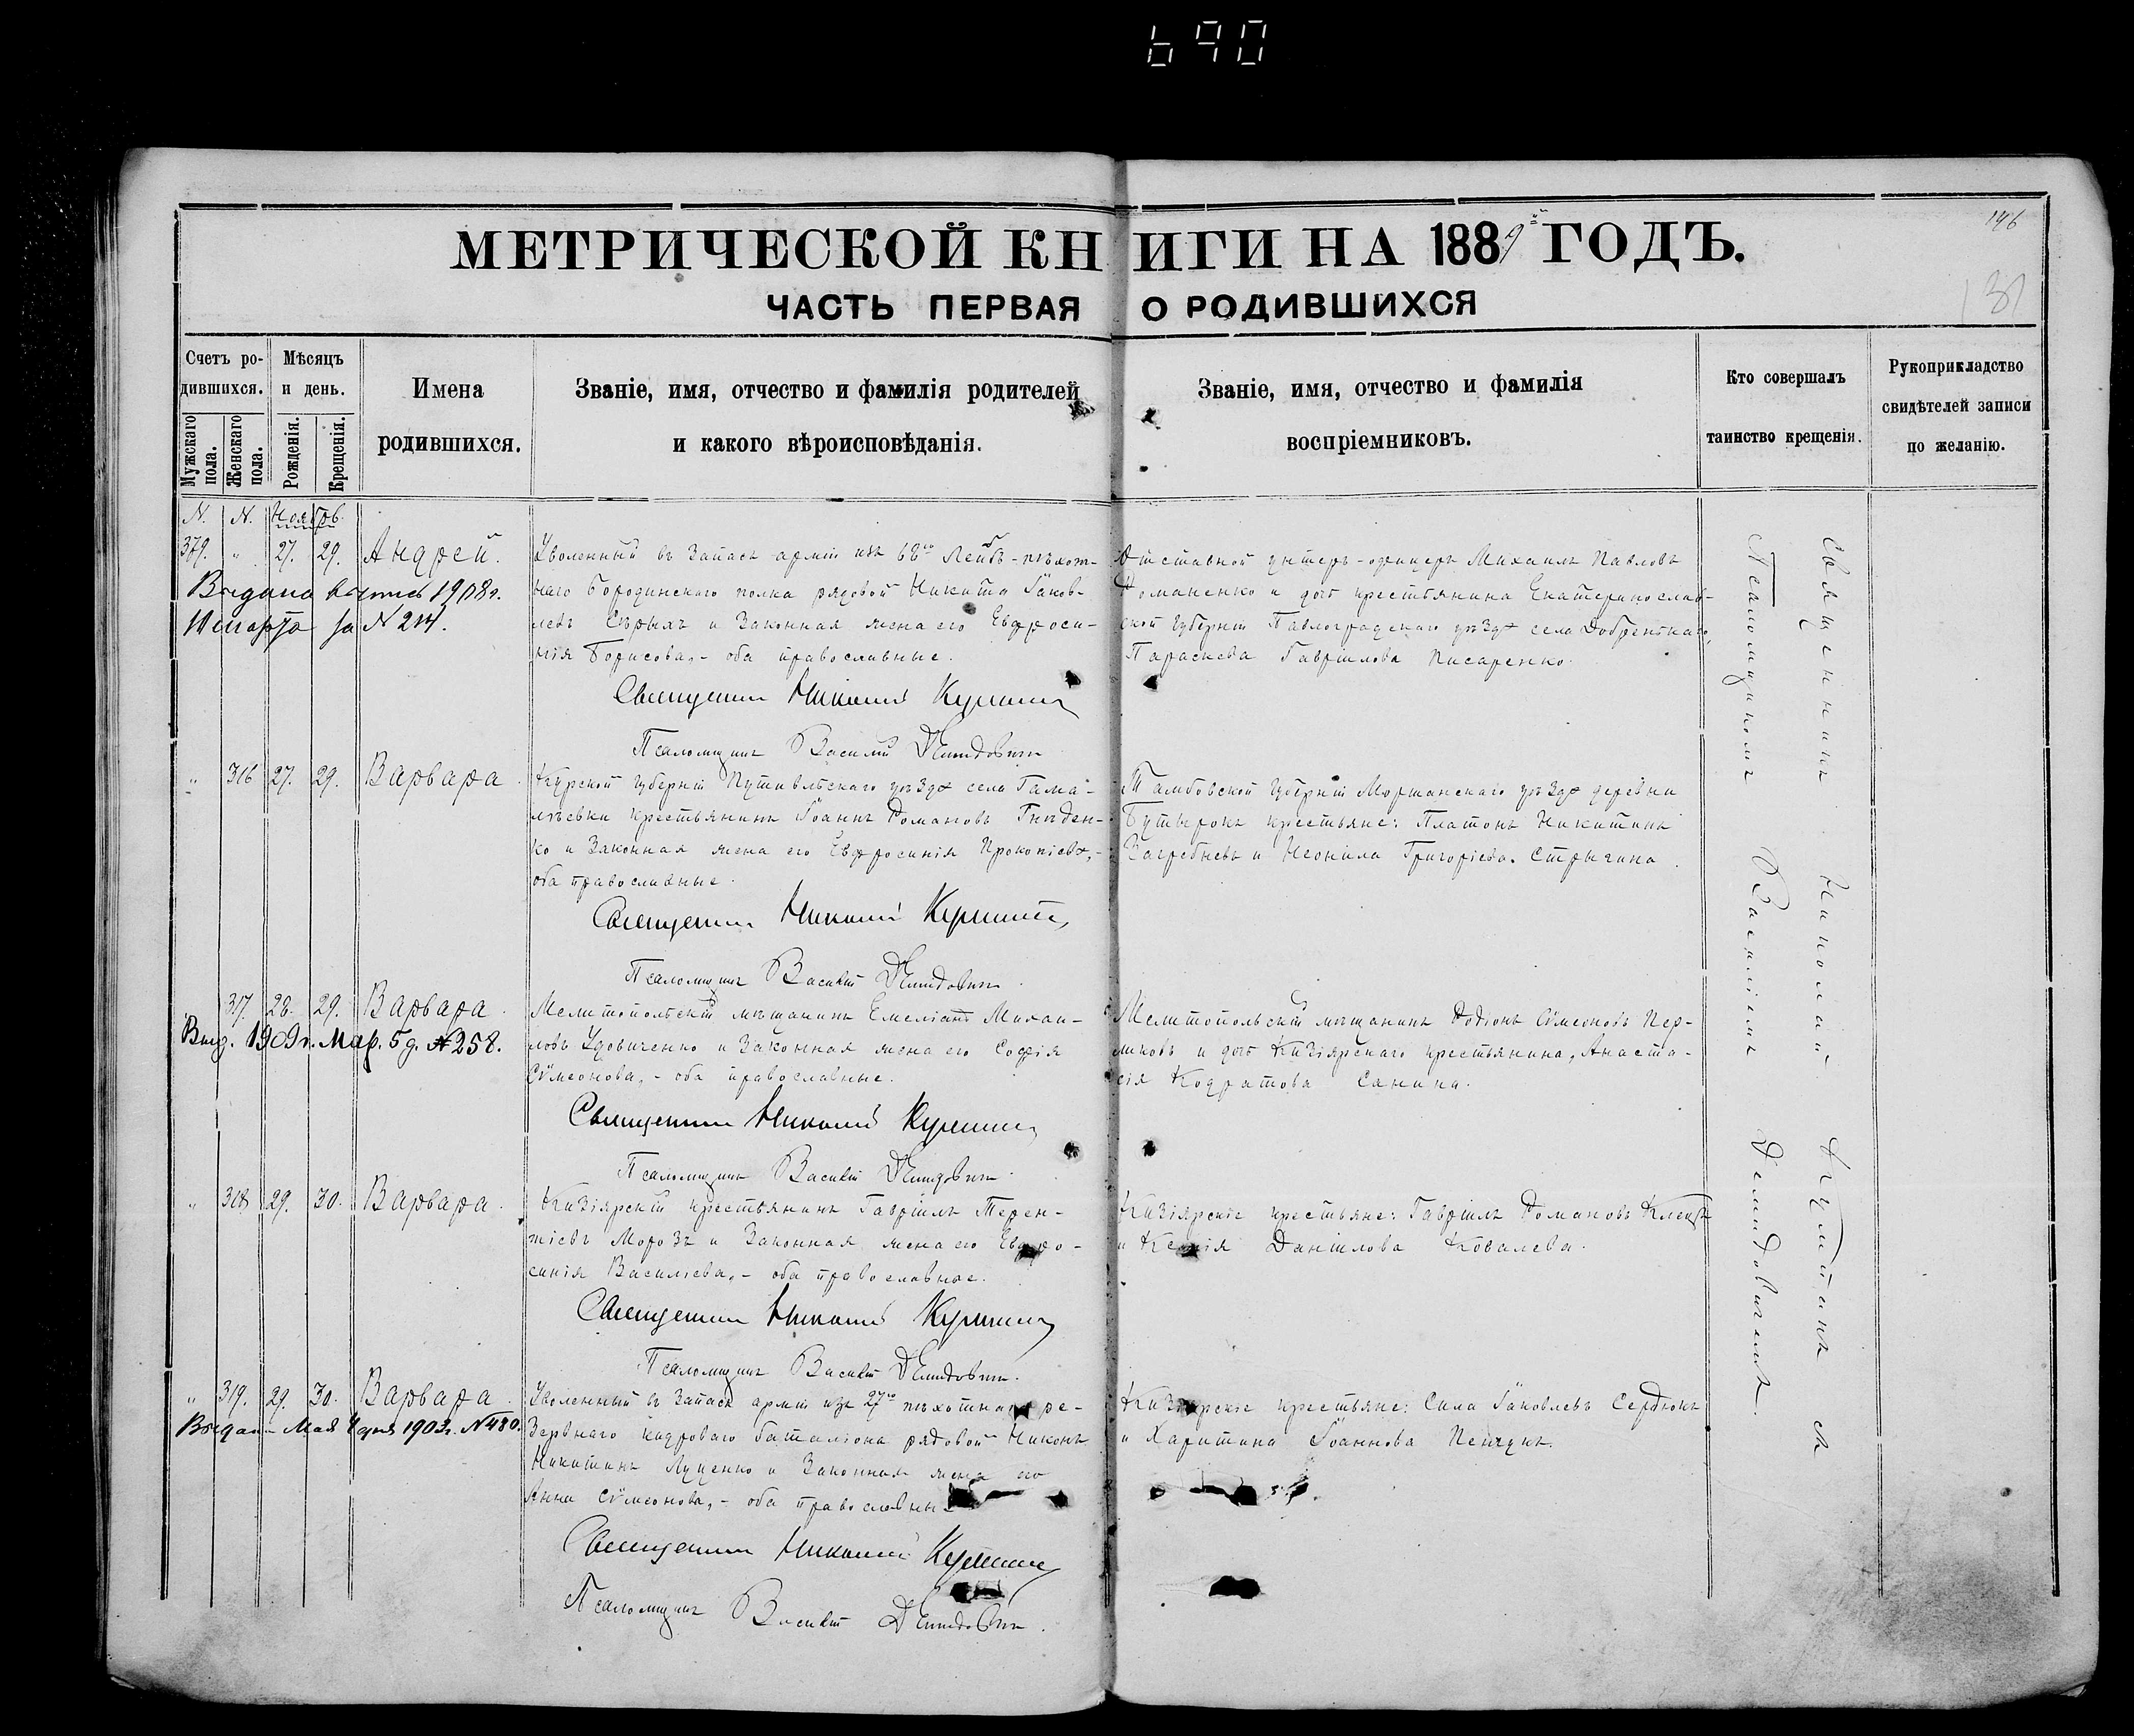 690
146
МЕТРИЧЕСКОЙ КНИГИ НА 1889й ГОДЪ.
131
ЧАСТЬ ПЕРВАЯ О РОДИВШИХСЯ
Счетъ ро-
дившихся.
Мужскаго пола.
Женскаго пола.
Мѣсяцъ
и день.
Рожденія.
Крещенія.
Имена
родившихся.
Званіе, имя, отчество и фамилія родителей
и какого вѣроисповѣданія.
Званіе, имя, отчество и фамилія
воспріемниковъ.
Кто совершалъ
таинство крещенія.
Рукоприкладство
свидѣтелей записи
по желанію.
N. N. Ноябрь.
379. " 27. 29. Андрей.
Выдана 1908 г.
10 марта за N 214.
Уволенный въ запасъ арміи изъ 68го Лейбъ-пѣхот-
наго Бородинскаго полка рядовой Никита Іаков-
левъ Сѣрыхъ и законная жена его Евфроси-
нія Борисова, - оба православные.
Священникъ Николай
Псаломщикъ Василій Демидовичъ
Отставной унтеръ-офицеръ Михаилъ Павловъ
Романенко и дочь крестьянина Екатеринослав-
ской губерніи Павлоградскаго уѣзда села
Параскева Гавріилова Писаренко.
" 316 27. 29. Варвара.
Курской губерніи Путивльскаго уѣзда села Гама-
лѣевки крестьянинъ Іоаннъ Романовъ Гнѣден-
ко и законная жена его Евфросинія Прокопіева, -
оба православные.
Священникъ Николай
Псаломщикъ Василій Демидовичъ.
Тамбовской губерніи Моршанскаго уѣзда деревни
Бутырокъ крестьяне: Платонъ Никитинъ
Загребневъ и Неонила Григоріева Стрыгина.
317. 28. 29. Варвара.
Выд. 1909 г. Мар. 5 д. № 258.
Мелитопольскій мѣщанинъ Емеліанъ Михаи-
ловъ Удовиченко и законная жена его Софія
Сѵмеонова, - оба православные.
Священникъ Николай
Псаломщикъ Василій Демидовичъ.
Мелитопольскій мѣщанинъ Родіонъ Сѵмеоновъ Пер-
и дочь Кизіярскаго крестьянина, Анаста-
сія Кодратова Санина.
" 318 29. 30. Варвара.
Кизіярскій крестьянинъ Гавріилъ Терен-
тіевъ Морозъ и законная жена его Евфро-
синія Василіева, - оба православные.
Священникъ Николай
Псаломщикъ Василій Демидовичъ.
Кизіярскіе крестьяне: Гавріилъ Романовъ
и Ксенія Даніилова Ковалева.
" 319. 29. 30. Варвара.
Выдан Мая дня 1903 г. N 480.
Уволенный въ запасъ арміи изъ 27го пѣхотнаго ре-
зервнаго кадроваго баталіона рядовой Никонъ
Никитинъ Луценко и законная жена его
Анна Сѵмеонова, - оба православные
Священникъ Николай
Псаломщикъ Василій Демидовичъ.
Кизіярскіе крестьяне: Сила Іаковлевъ Сердюкъ
и Харитина Іоаннова
Священникъ Николай
съ
Псаломщикомъ Василіемъ Демидовичемъ.